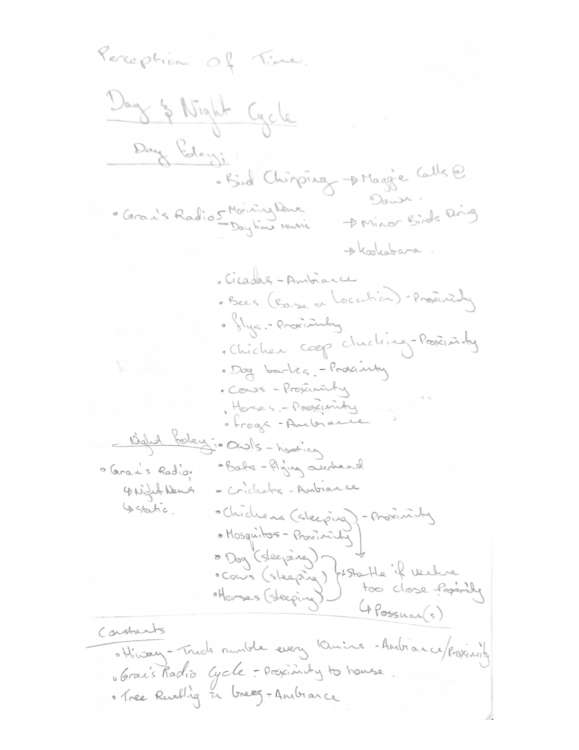 Perception of Time.
Day & Night Cycle
Day Foley:
• Bird Chirping → Maggie Calls @
Dawn.
• Gran's Radio Morning News
- Daytime music
→ Minor Birds
→ Kookabara.
• Cicadas - Ambiance
• Bees (Base on Location) - Proximity
• flys. - Proximity
• Chicken coop clucking - Proximity
• Dog barkes. - Proximity
• Cows - Proximity
• Horses. - Proximity
• frogs - Ambiance
- Night foley: • Owls - hooting
• Gran's Radio. • Bats - flying overhead
↳ Night News • Crickets - Ambiance
↳ static. • Chickens (sleeping) - Proximity
• Mosquitos - Proximity
• Dog (sleeping)
• Cows (sleeping) → startle if venture
• Horses (sleeping) too close - Proximity
↳ Possum(s)
Constants
• Hiway - Truck rumble every 10mins - Ambiance/Proximity
• Gran's Radio Cycle - Proximity to house.
• Tree Rustling in breez - Ambiance